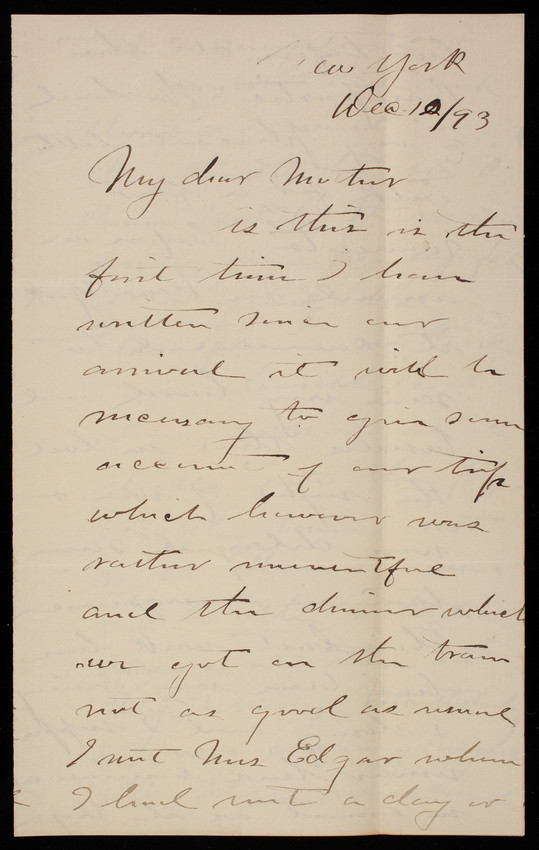 New York
Dec 12/93
My dear Mother
is this is the
first time I have
written since our
arrival it will be
necessary to give some
account of our trip
which however was
rather uneventful
and the dinner which
we got on the train
not as good as usual
I met Mrs Edgar whom
I had met a day or